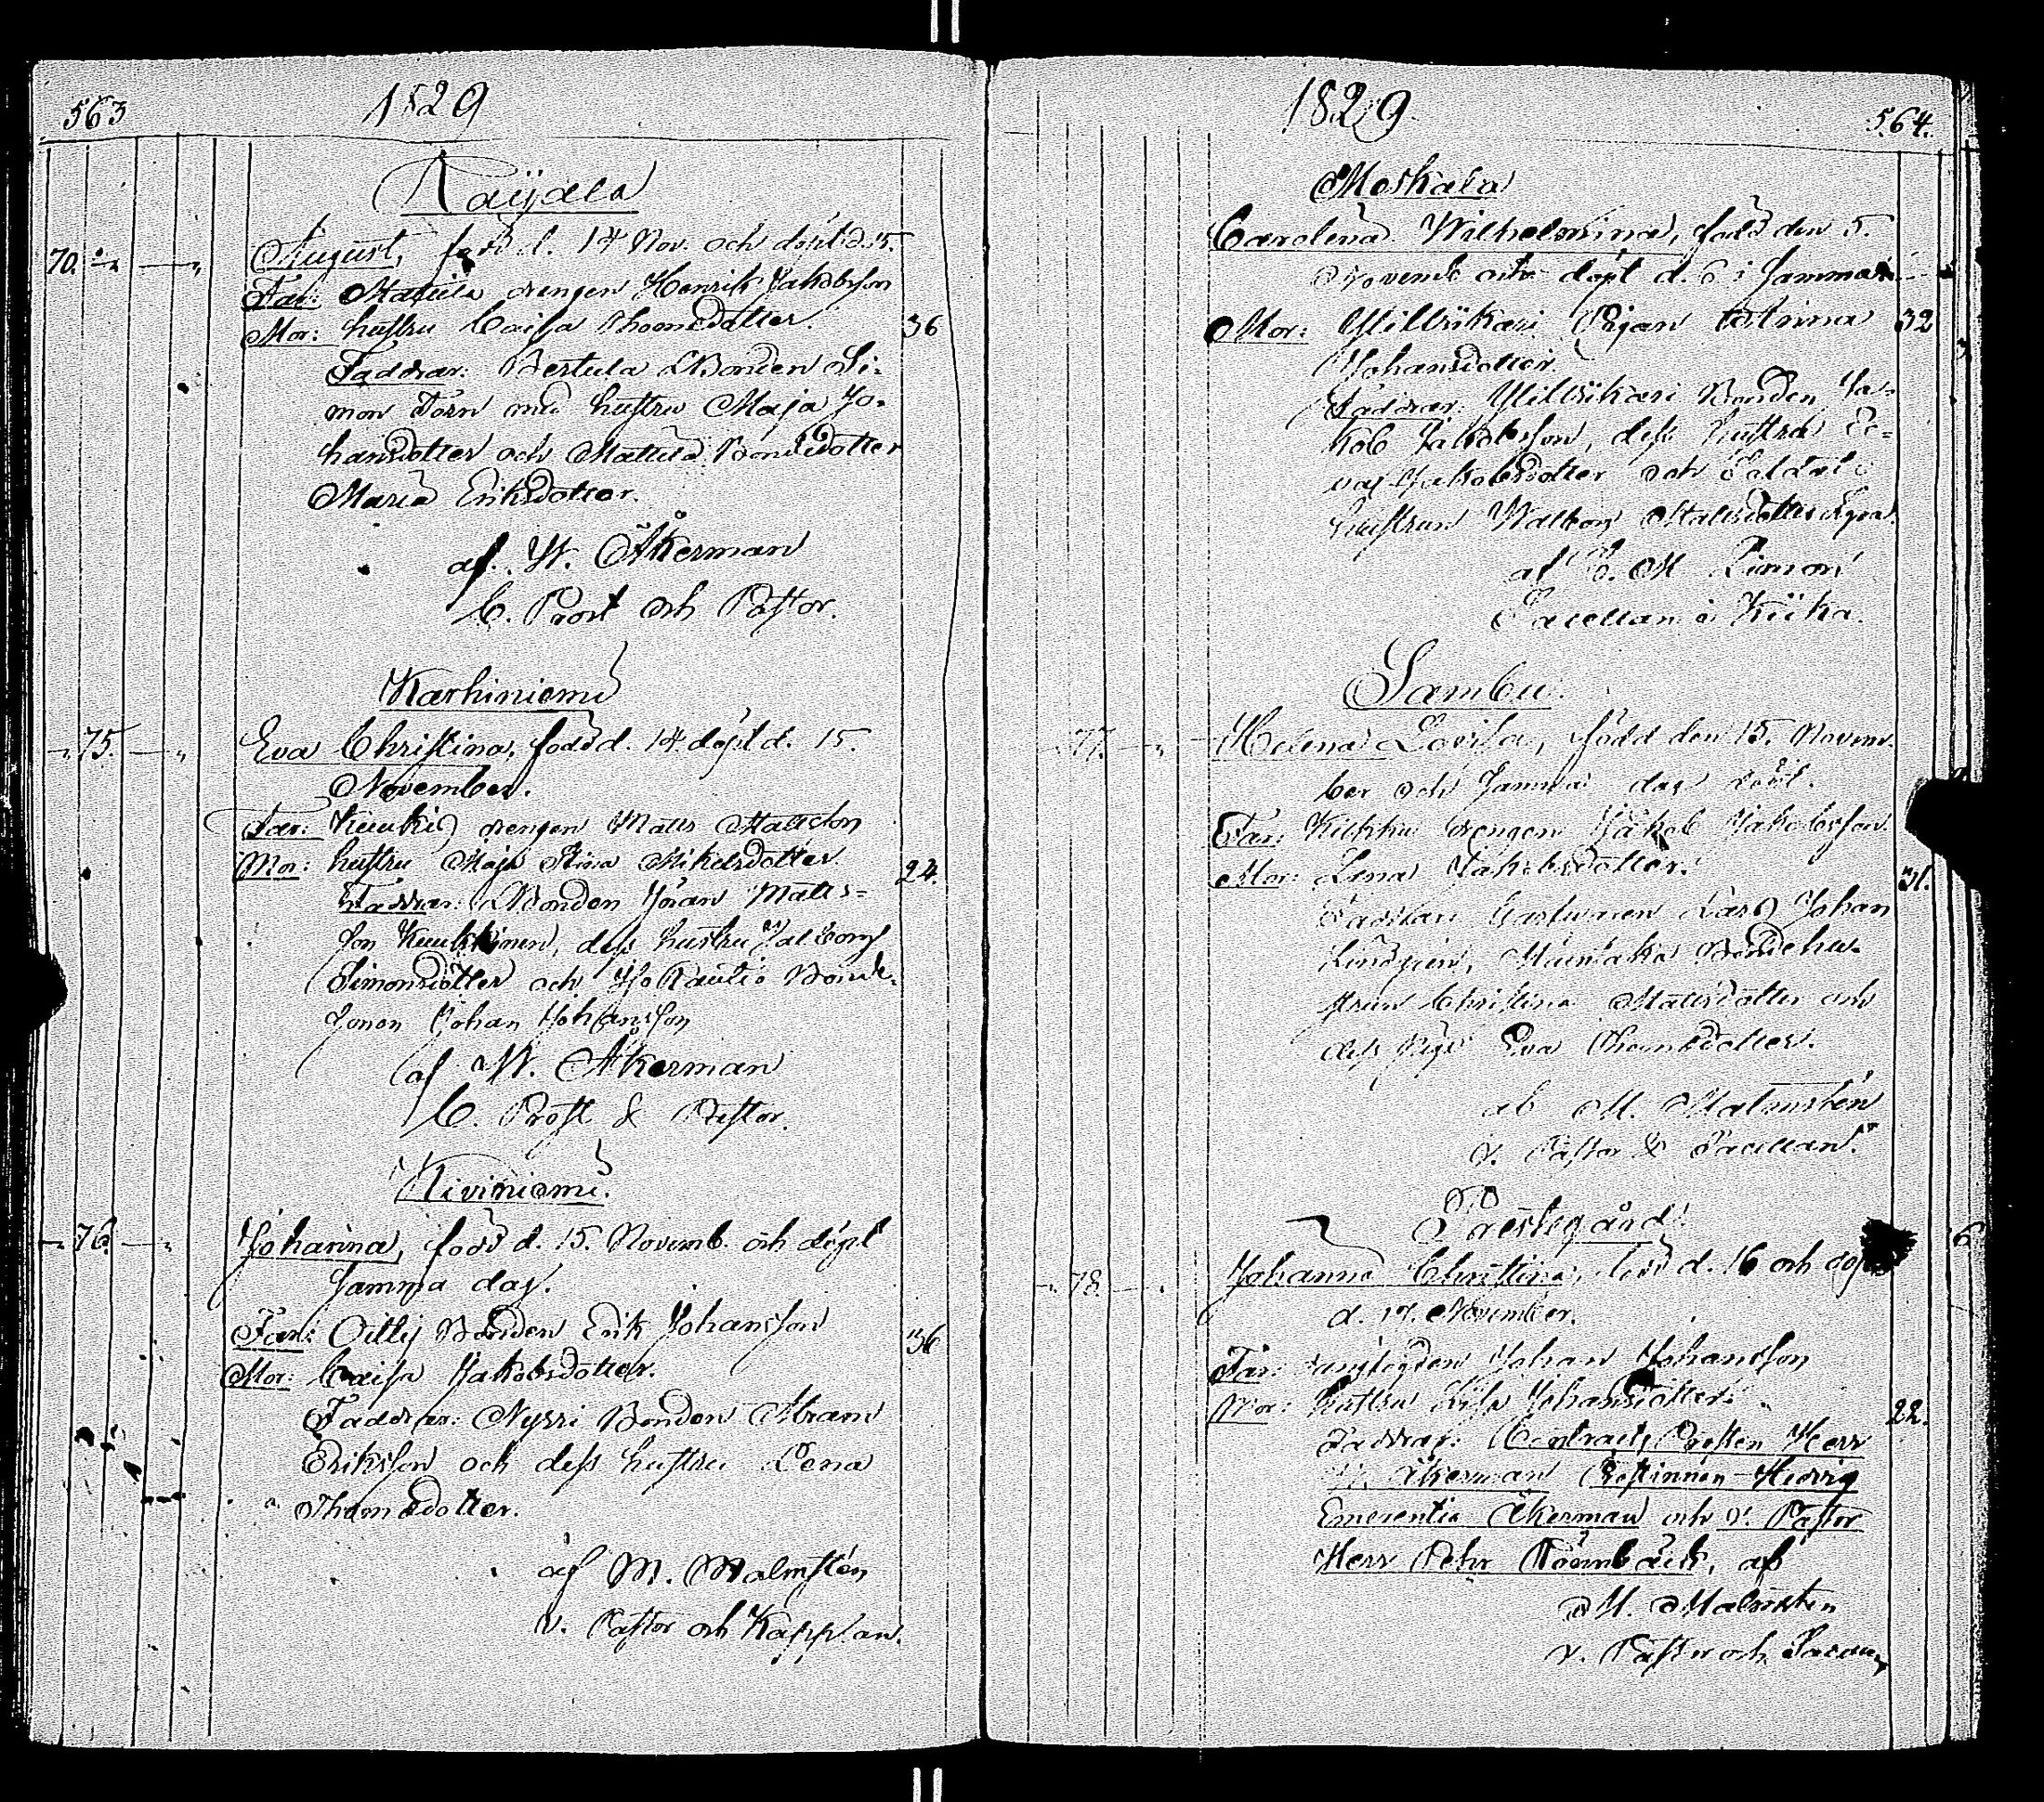 563 1829
Räijälä
70. August, född d. 14 Nov. och döpt d. 15.
Far: Mattila drengen Henrik Jakobsson
Mor: hustru Caisa Thomsdotter. 36
Faddrar: Bertula Bonden Si-
mon Törn med hustru Maja Jo-
hansdotter och Mattila Bondedotter
Maria Eriksdotter.
af. W. Åkerman
C. Prost och Pastor.
Karhiniemi
75. Eva Christina, född d. 14. döpt d. 15.
November.
Far: Kuukki drengen Matts Mattsson
Mor: hustru Maja Stina Mikelsdotter 24.
Faddrar: Bonden Jöran Matts-
son Kuukkinen, dess hustru Valborg
Simonsdotter och Iso Rautio Bonde-
sonen Johan Johansson
af W. Åkerman
C. Prost & Pastor.
Kiviniemi.
76. Johanna, född d. 15. Novemb. och döpt
samma dag.
Far: Ollij Bonden Erik Johansson 36
Mor: Caisa Jakobsdotter.
Faddrar: Nyrri Bonden Abram
Eriksson och dess hustru Lena
Thomsdotter.
af M. Malmstén
v. Pastor och Kapplan.
1829. 564.
Moskala
Carolina Wilhelmina, född den 5.
Novemb och döpt d. 6 i samma
Mor: Yliltikari Pigan Stina 32
Johansdotter.
Faddrar: Bonden Ja-
kob Jakobsson, dess hustru E-
va Jakobsdotter och Soldat
hustrun Walborg Mattsdotter
af M Limon
Sacellan i Kiika.
Sambu.
77. Helena Lovisa, född den 15. Novem-
ber och samma dag döpt.
Far: Kiikku drengen Jakob Jakobsson.
Mor: Lena Jakobsdotter. 31.
Faddrar Lars Johan
Lindgren, Bondehu-
strun Christina Mattsdotter och
dess Piga Eva Thomsdotter.
af M. Malmstén
v. Pastor & Sacellan.
Prestegård.
78. Johanna Christina, född d. 16 och döpt
d. 17. November.
Far: Johan Johansson
Mor: hustru Lisa Johansdotter. 22.
Faddrar: Contracts Prosten Herr
W. Åkerman Prostinnan Hedvig
Emerentia Åkerman och v. Pastor
Herr Pehr Roembäck, af
M. Malmsten
v. Pastor och Sacell